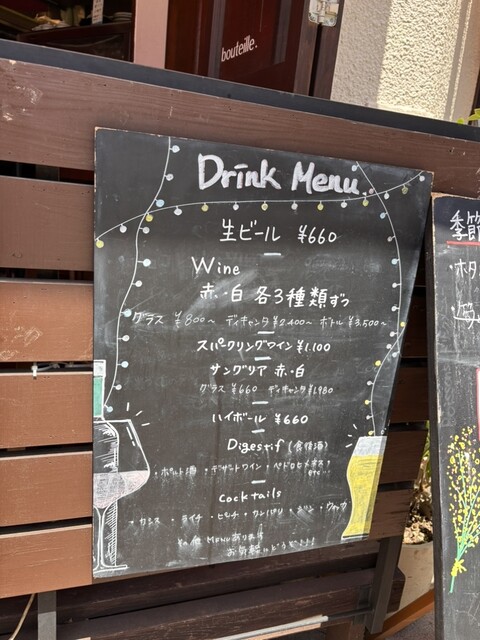 bouteille.
Drink Menu.
生ビール ¥660
Wine
赤・白 各3種類ずつ
グラス ¥800〜 ディキャンタ ¥2,400〜 ボトル ¥3,500〜
スパークリングワイン ¥1,100
サングリア 赤・白
グラス ¥660 ディキャンタ ¥1,980
ハイボール ¥660
Digestif (食後酒)
・ポルト酒 ・デザートワイン ・ペドロヒメネス
etc...
Cocktails
・カシス ・ライチ ・ピーチ ・カンパリ ・ジン ・ウォッカ
その他 Menuあります
お気軽にどうぞ
季節
・ホタ